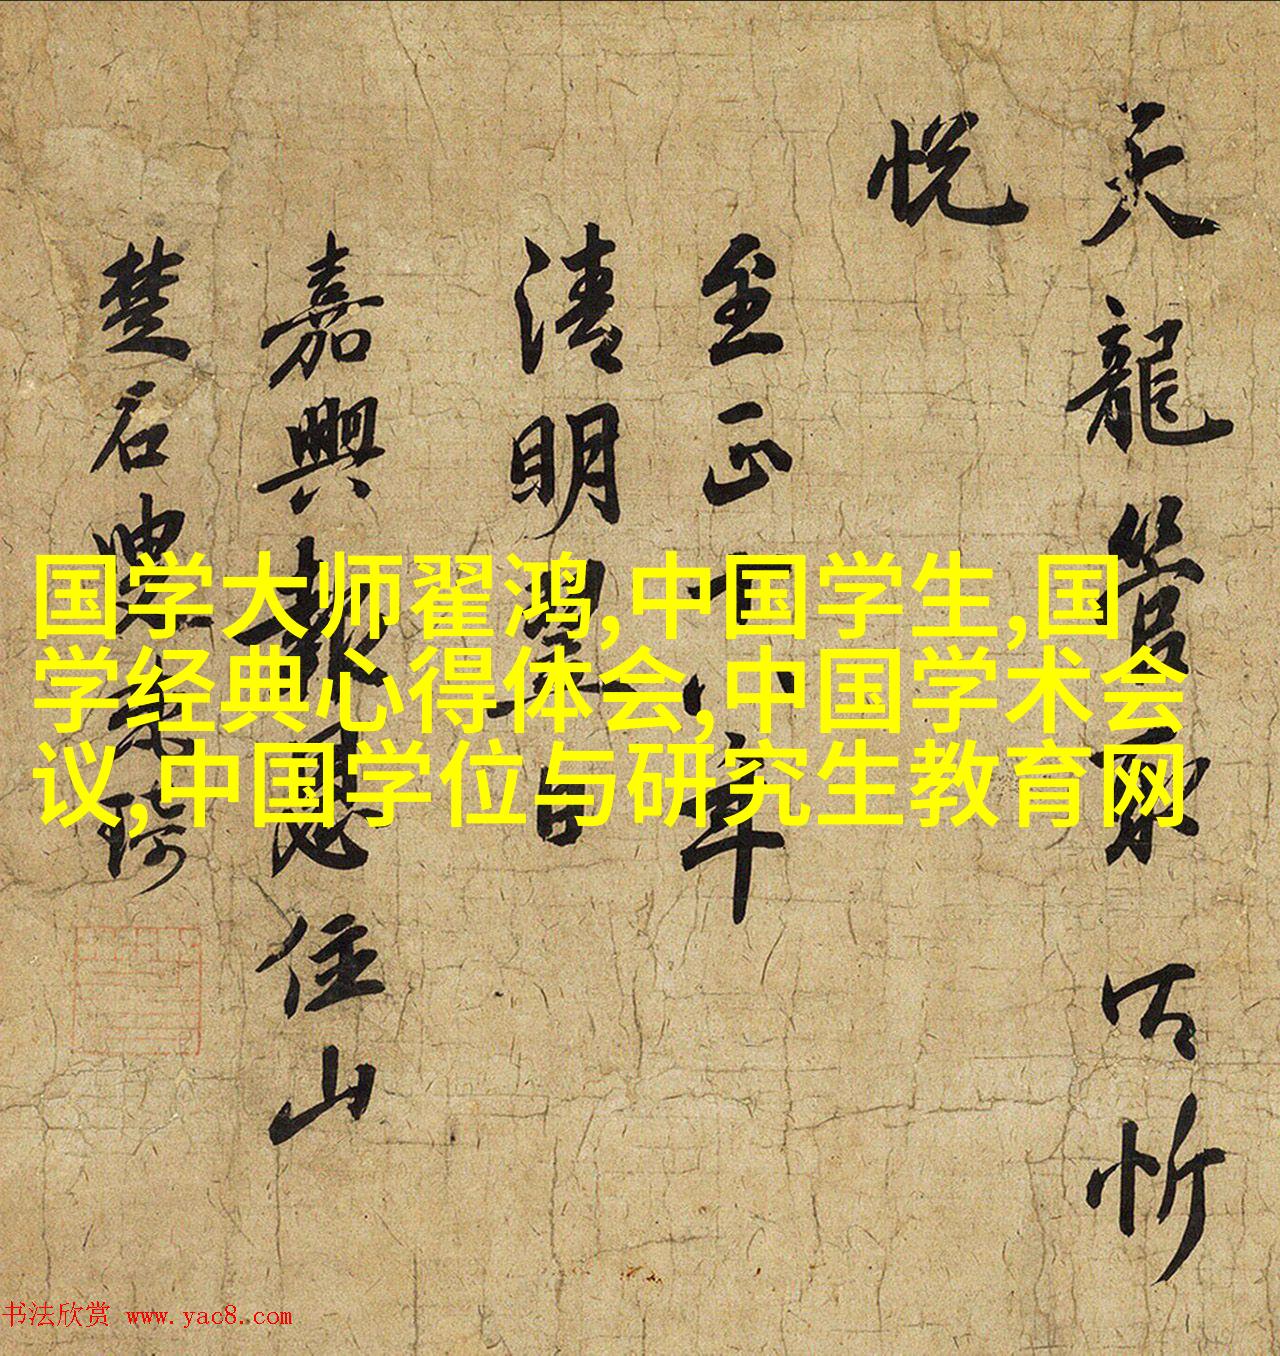 天龍管以忻
悦
至正十八年
清明望日
嘉興報恩住山
楚石琦
国学大师翟鸿,中国学生,国
学经典心得体会,中国学术会
议,中国学位与研究生教育网
书法欣赏 www.yac8.com